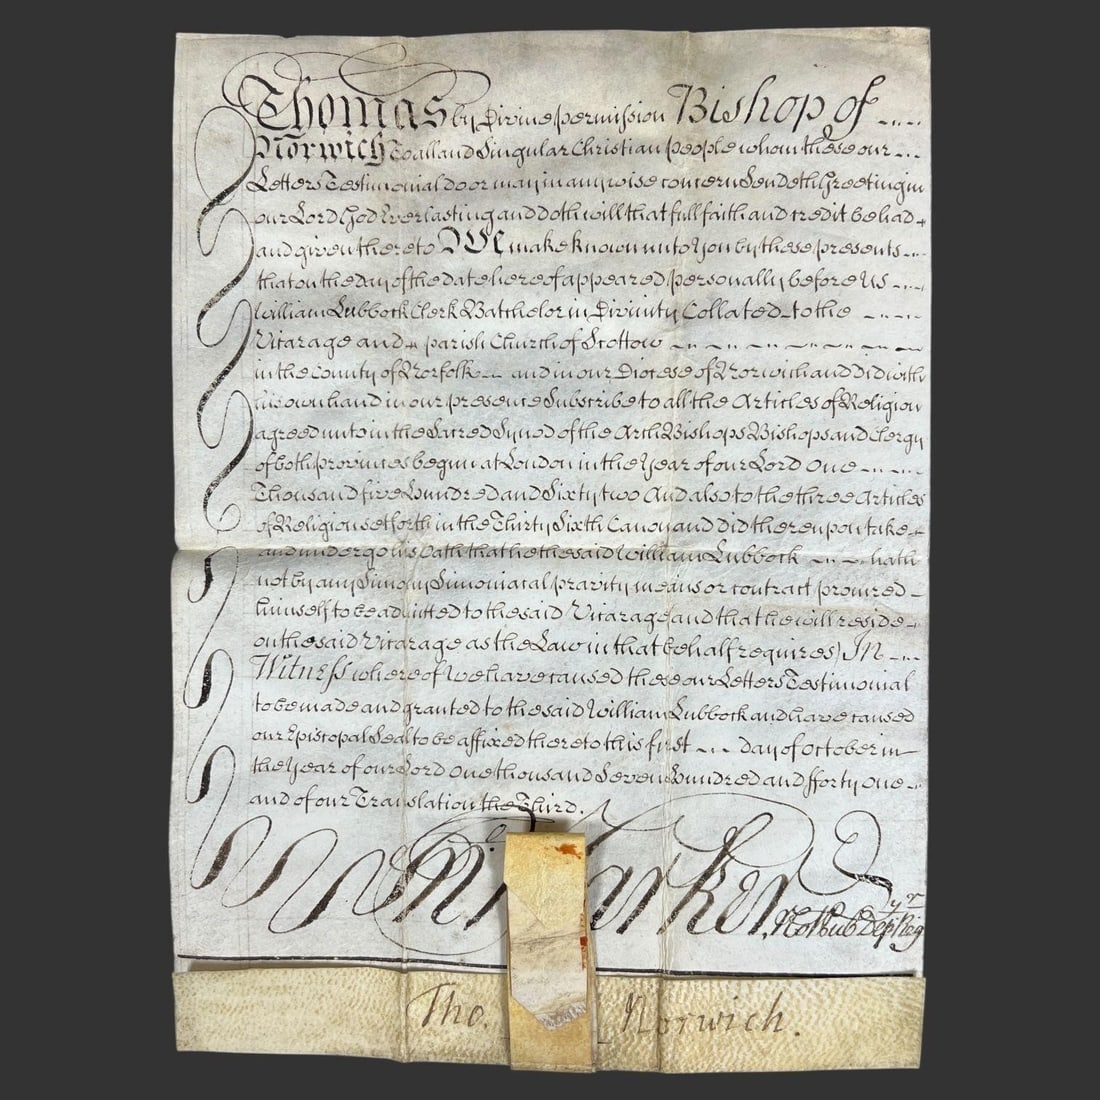 Thomas by Divine permission Bishop of
Norwich To all and Singular Christian people whom these our
Letters Testimonial do or may in any wise concern Sendeth Greeting in
our Lord God Everlasting and doth will that full faith and credit be had
and given thereto We make known unto You by these presents
that on the day of the date hereof appeared personally before Us
William Lubbock Clerk Batchelor in Divinity Collated to the
Vicarage and parish Church of Scottow
in the County of Norfolk and in our Diocese of Norwich and did with
his own hand in our presence Subscribe to all the Articles of Religion
agreed unto in the Sacred Synod of the Arch Bishops Bishops and Clergy
of both provinces begun at London in the Year of our Lord One
Thousand five Hundred and Sixty two And also to the three Articles
of Religion set forth in the Thirty Sixth Canon and did thereupon take
and undergo his Oath that he the said William Lubbock hath
not by any Simony Simoniacal pravity means or contract procured
himself to be admitted to the said Vicarage (and that he will reside
on the said Vicarage as the Law in that behalf requires) In
Witness whereof We have caused these our Letters Testimonial
to be made and granted to the said William Lubbock and have caused
our Episcopal Seal to be affixed thereto this first day of October in
the Year of our Lord One thousand Seven Hundred and fforty one
and of our Translation the Third.
Not Pub Dep.ty Reg.r
Tho. Norwich.